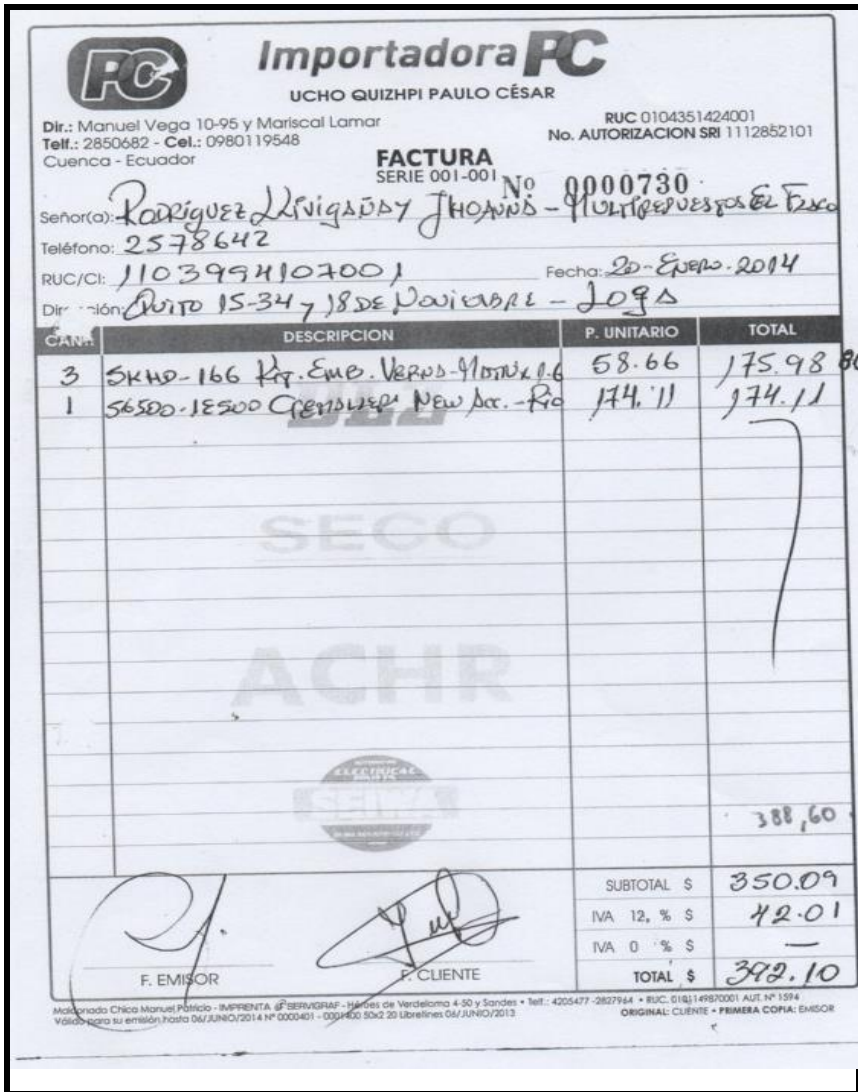 PC
Importadora PC
UCHO QUIZHPI PAULO CÉSAR
Dir.: Manuel Vega 10-95 y Mariscal Lamar
Telf.: 2850682 - Cel.: 0980119548
Cuenca - Ecuador
RUC 0104351424001
No. AUTORIZACION SRI 1112852101
FACTURA
SERIE 001-001 Nº 0000730
Señor(a): Rodriguez - Multirepuestos El
Teléfono: 2578642
RUC/CI: 1103994107001 Fecha: 20-Enero-2014
Quito 15-34 y 18 de Noviembre - Loja
DESCRIPCION P. UNITARIO TOTAL
3 SKHD-166 Kit. Emb. Verna-Matrix 1.6 58.66 175.98
1 56500-1E500 New Acc.-Rio 174.11 174.11
SECO
ACHR
ELECTRICAL
PARTS
SEIWA
388,60
SUBTOTAL $ 350.09
IVA 12, % $ 42.01
IVA 0 % $ —
TOTAL $ 392.10
F. EMISOR F. CLIENTE
Maldonado Chica Manuel Patricio - IMPRENTA SERVIGRAF - Héroes de Verdeloma 4-50 y Sandes • Telf.: 4205477 -2827964 • RUC. 0101149870001 AUT. Nº 1594
Válido para su emisión hasta 06/JUNIO/2014 Nº 0000401 - 0001400 50x2 20 Libretines 06/JUNIO/2013 ORIGINAL: CLIENTE • PRIMERA COPIA: EMISOR